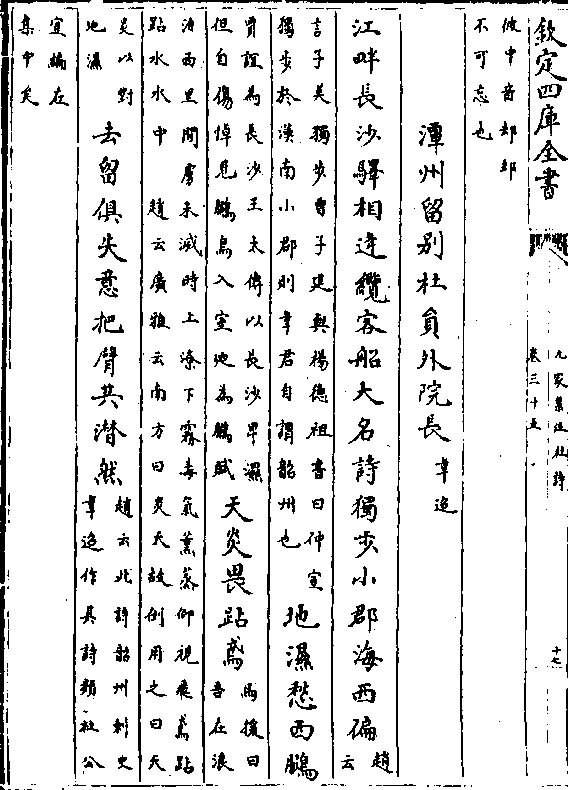 欽定四庫全書
九家集注杜詩
卷三十五
十七
中音却
不可忘也
潭州留别杜員外院長 韋迢
江畔長沙驛相逢纜客船大名詩獨步小郡海西偏 趙
云
言子美獨步曹子建與楊德祖書曰仲宣
獨步於漢南小郡則韋君自謂韶州也
地濕愁西鵩
賈誼為長沙王太傅以長沙卑濕
但自傷悼見鵩鳥入室也為鵩賦
天炎畏跕鳶
馬援曰
吾在浪
泊西里間虜未滅時上潦下霧毒氣薰蒸仰視飛鳶跕
跕水水中 趙云廣雅云南方曰炎天故倒用之曰天
炎以對
地濕
去留俱失意把臂共潸然
趙云此詩韶州刺史
韋迢作其詩類杜公
宜編在
集中矣